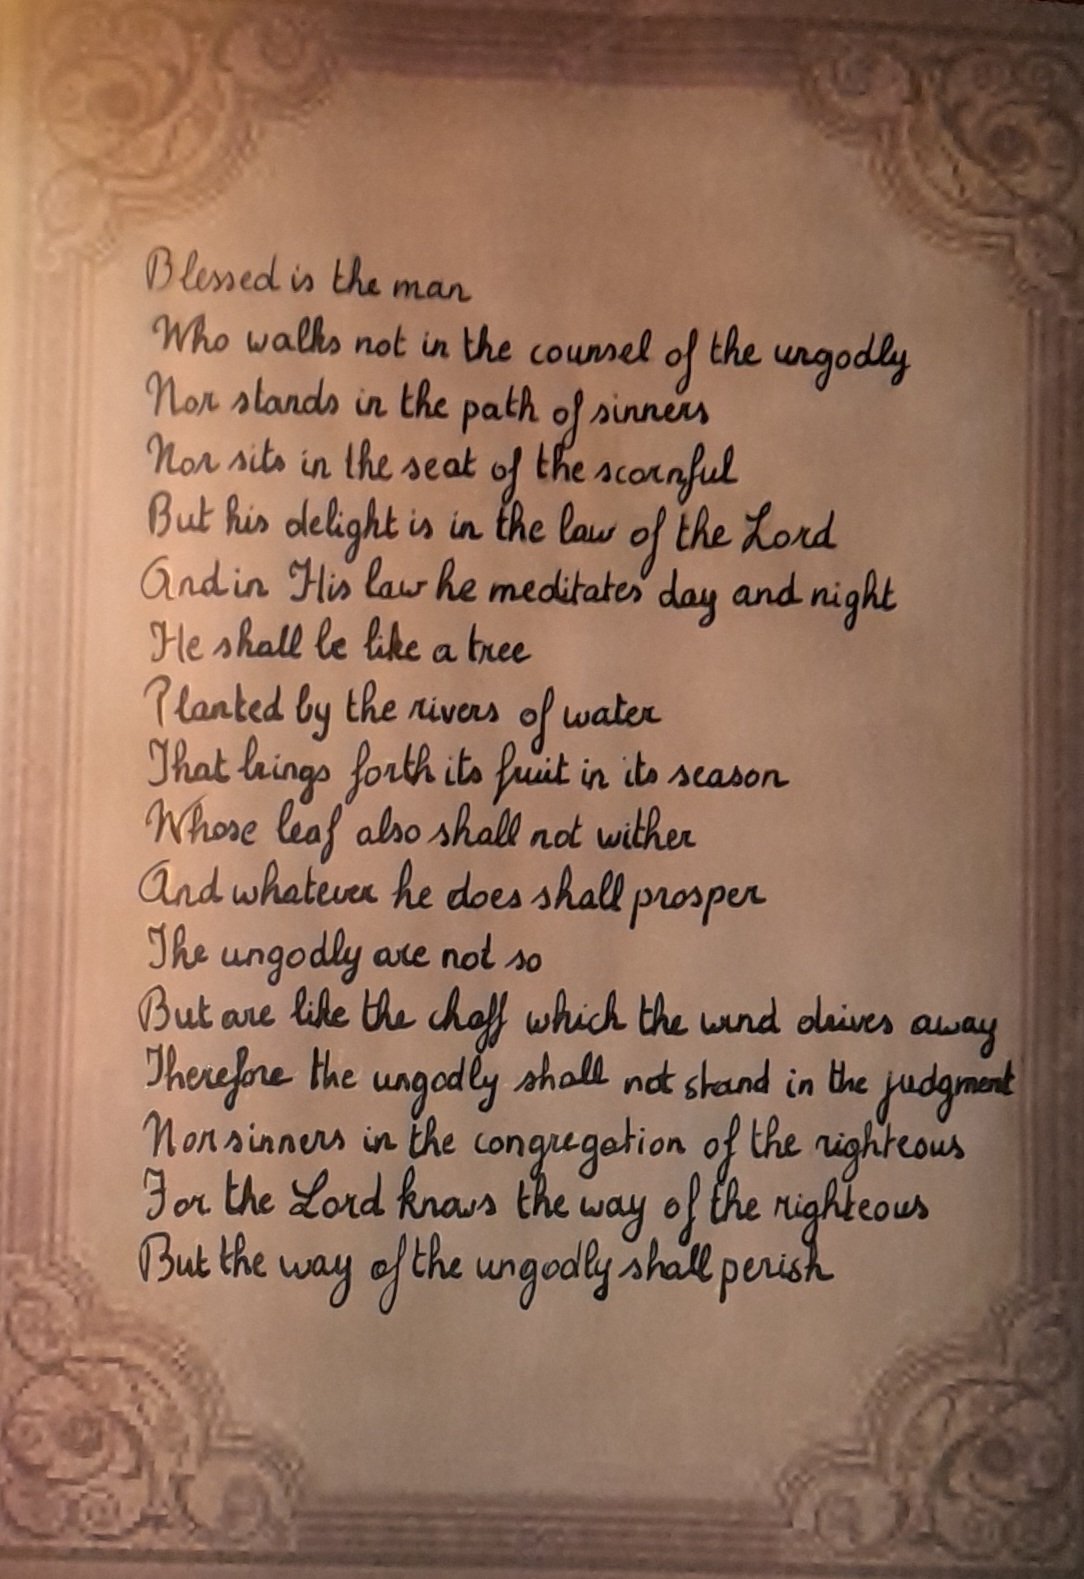 Blessed is the man
Who walks not in the counsel of the ungodly
Nor stands in the path of sinners
Nor sits in the seat of the scornful
But his delight is in the law of the Lord
And in His law he meditates day and night
He shall be like a tree
Planted by the rivers of water
That brings forth its fruit in its season
Whose leaf also shall not wither
And whatever he does shall prosper
The ungodly are not so
But are like the chaff which the wind drives away
Therefore the ungodly shall not stand in the judgment
Nor sinners in the congregation of the righteous
For the Lord knows the way of the righteous
But the way of the ungodly shall perish